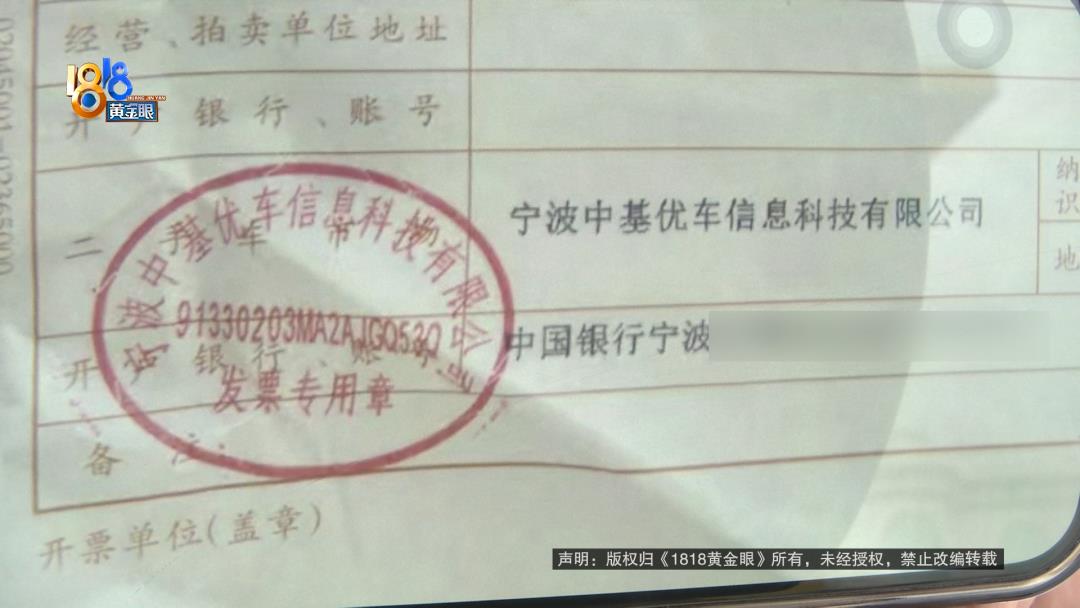 经营、拍卖单位地址
1818
HUANG JIN YAN
黄金眼
开户银行、账号
纳
识
地
二
宁波中基优车信息科技有限公司
宁波中基优车信息科技有限公司
91330203MA2AJGQ53Q
发票专用章
开户银行、账号
中国银行宁波
备注:
开票单位(盖章)
声明：版权归《1818黄金眼》所有，未经授权，禁止改编转载